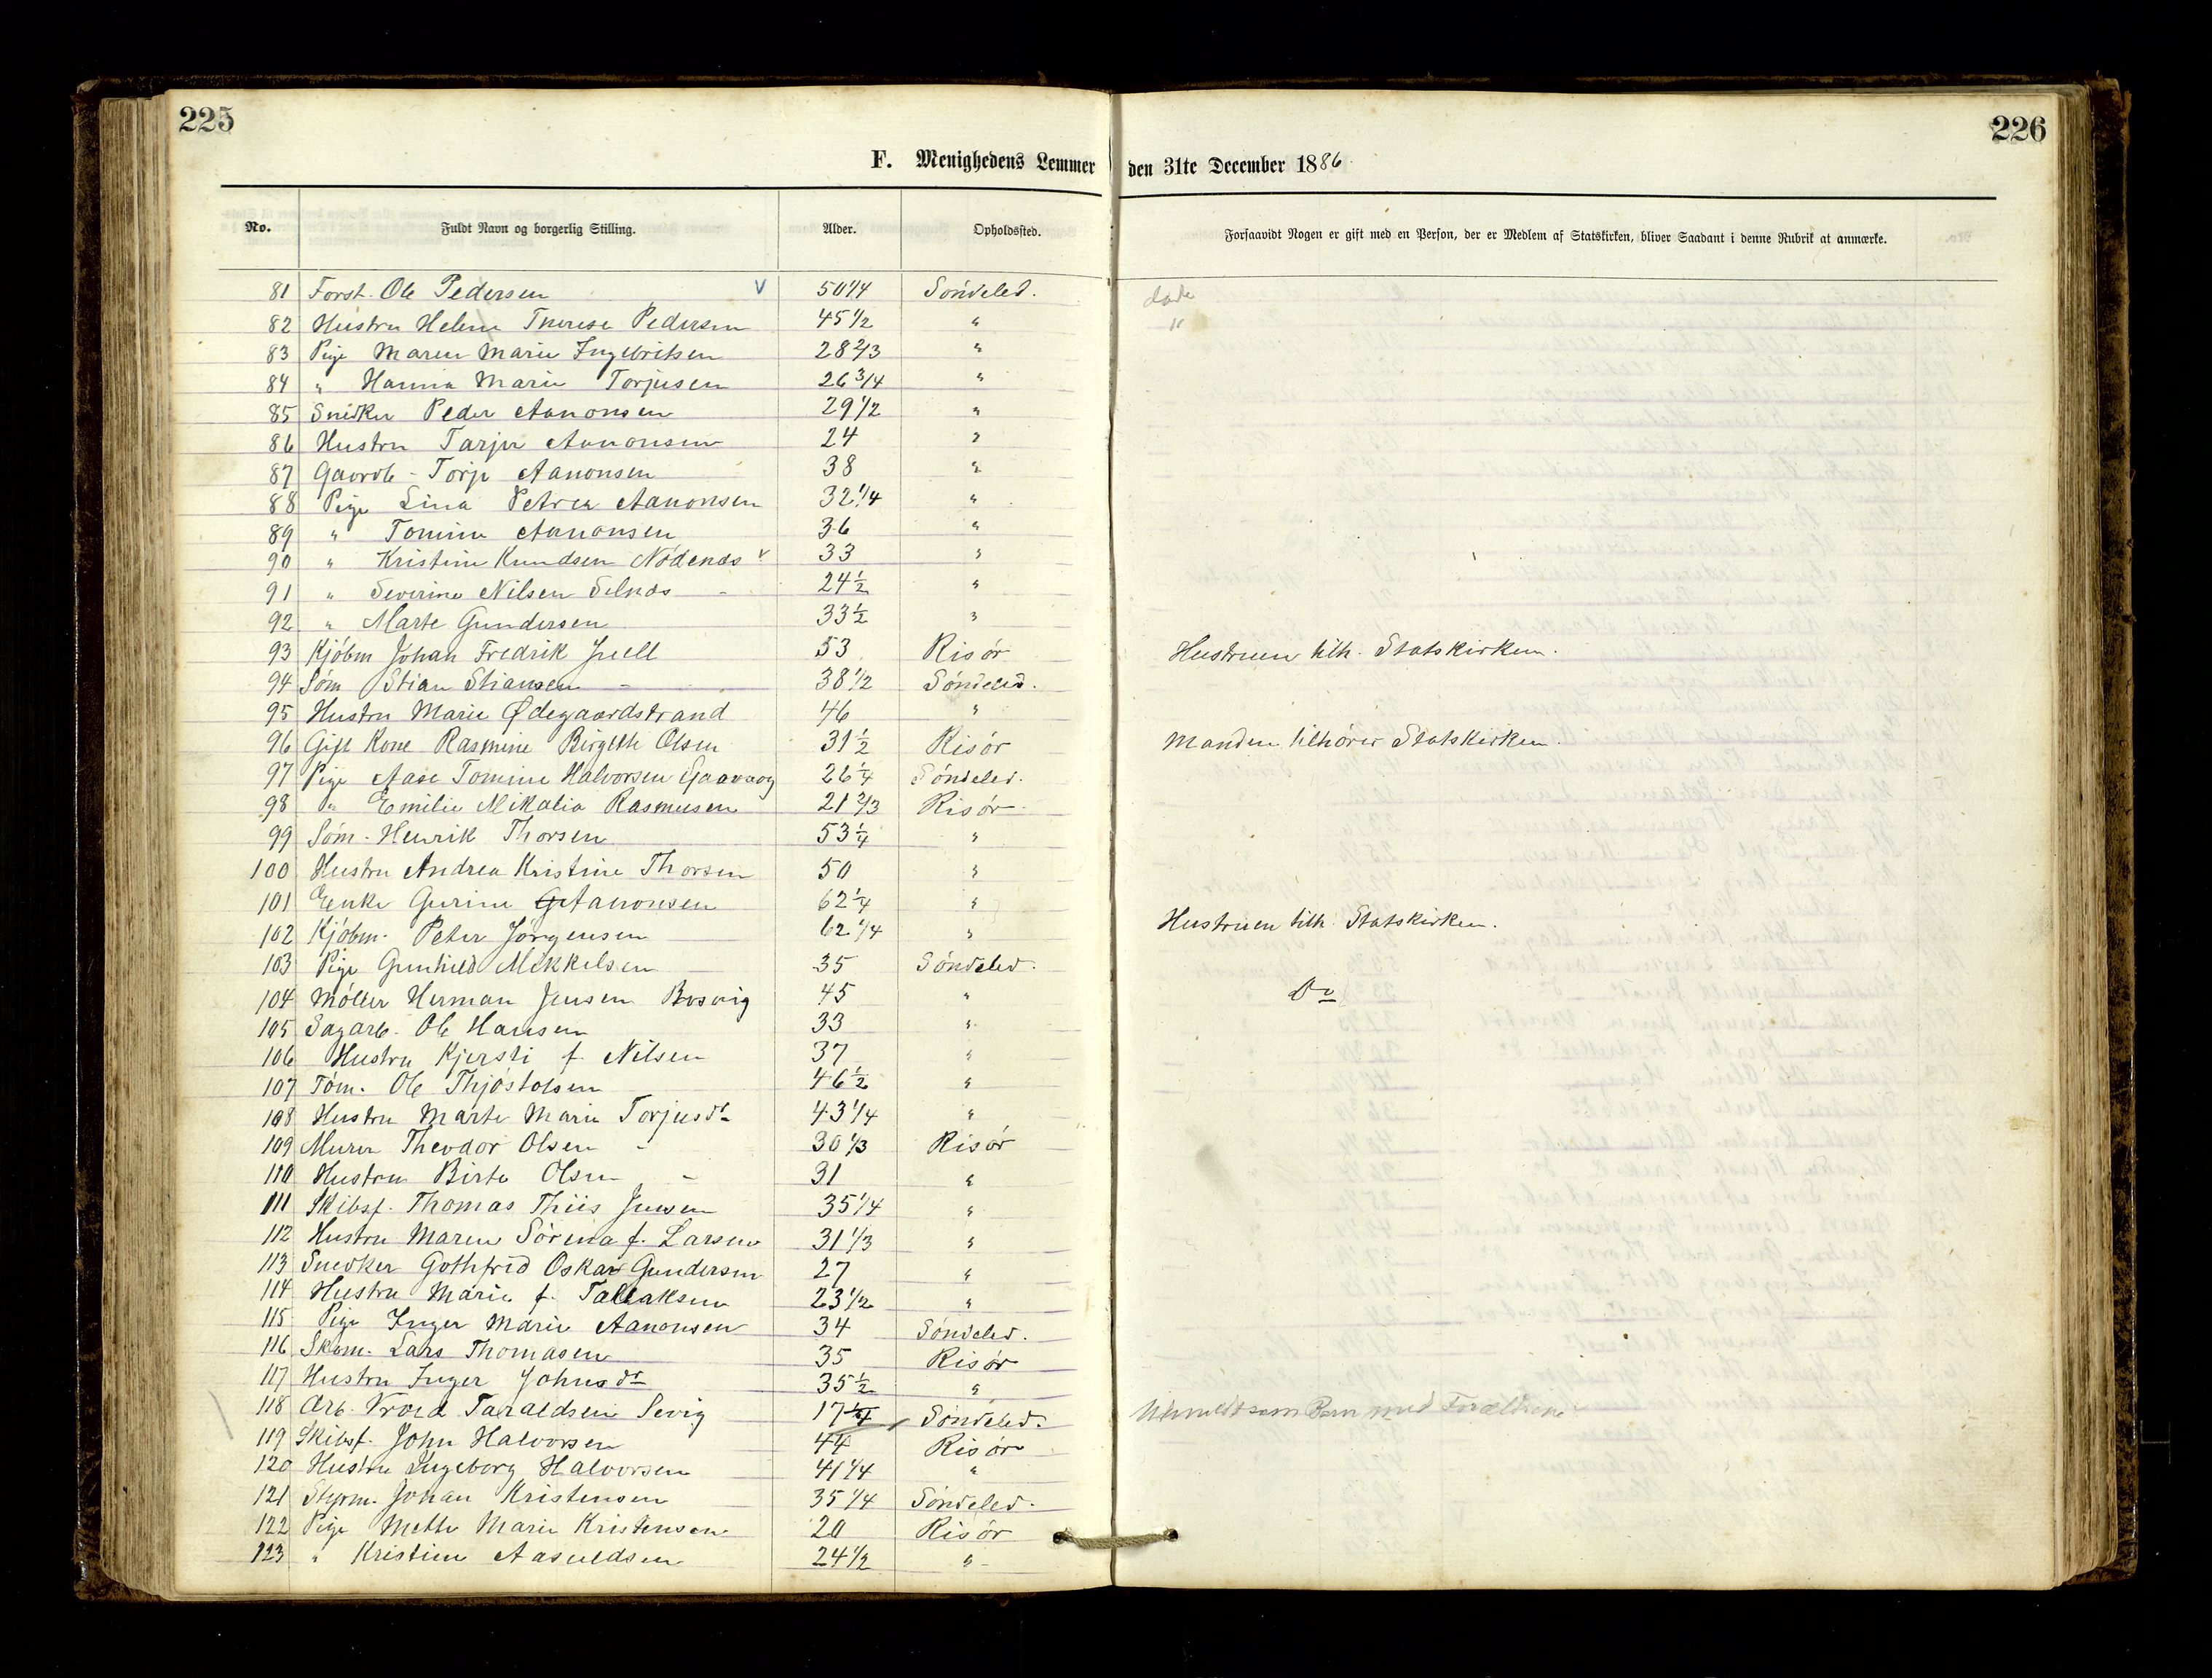 225
226
F. Menighedens Lemmer den 31te December 1886
No. Fuldt Navn og borgerlig Stilling. Alder. Opholdssted. Forsaavidt Nogen er gift med en Person, der er Medlem af Statskirken, bliver Saadant i denne Rubrik at anmærke.
81 Forst. Ole Pedersen V 50 1/4 Söndeled.
82 Hustru Helene Therese Pedersen 45 1/2 " "
83 Pige Maren Marie Ingebritsen 28 2/3 "
84 " Hanna Marie Torjusen 26 3/4 "
85 Snedker Peder Aanonsen 29 1/2 "
86 Hustru Tarjer Aanonsen 24 "
87 Gaardb- Torje Aanonsen 38 "
88 Pige Lina Petrea Aanonsen 32 1/4 "
89 " Tomine Aanonsen 36 "
90 " Kristine Knudsen Nödenæs v 33 "
91 " Severine Nilsen Selnæs - 24 1/2 "
92 " Marte Gundersen 33 1/2 "
93 Kjöbm Johan Fredrik Juell 53 Risör Hustruen tilh. Statskirken.
94 Söm Stian Stiansen - 38 1/2 Söndeled.
95 Hustru Marie Ødegaardstrand 46 "
96 Gift Kone Rasmine Birgithe Olsen 31 1/2 Risör Manden tilhörer Statskirken.
97 Pige Aase Tomine Halvorsen 26 1/4 Söndeled.
98 " Emilie Mikalia Rasmusen 21 2/3 Risör
99 Söm- Henrik Thorsen 53 1/4 "
100 Hustru Andrea Kristine Thorsen 50 "
101 Enke Gurine Aanonsen 62 1/4 "
102 Kjöbm- Peter Jörgensen 62 1/4 " Hustruen tilh. Statskirken.
103 Pige Gunhild Mikkelsen 35 Söndeled.
104 Möller Herman Jensen Bosvig 45 " Do
105 Sagarb. Ole Hansen 33 "
106 Hustru Kjersti f. Nilsen 37 "
107 Töm. Ole Thjöstolsen 46 1/2 "
108 Hustru Marte Marie Torjusdr 43 1/4 "
109 Murer Theodor Olsen - 30 1/3 Risör
110 Hustru Birte Olsen - 31 "
111 Skibsf. Thomas Thiis Jensen 35 1/4 "
112 Hustru Maren Sörine f. Larsen 31 1/3 "
113 Snedker Gothfred Oskar Gundersen 27 "
114 Hustru Marie f. Tallaksen 23 1/2 "
115 Pige Inger Marie Aanonsen 34 Söndeled.
116 Skom. Lars Thomasen 35 Risör
117 Hustru Inger Johnsdr 35 1/2 "
118 Arb. Taraldsen Sevig 17 1/4 Söndeled. som Barn med Forældrene
119 Skibsf. John Halvorsen 44 Risör
120 Hustru Ingeborg Halvorsen 41 1/4 "
121 Styrm. Johan Kristensen 35 1/4 Söndeled.
122 Pige Mette Marie Kristensen 20 Risör
123 " Kristine Aasuldsen 24 1/2 "